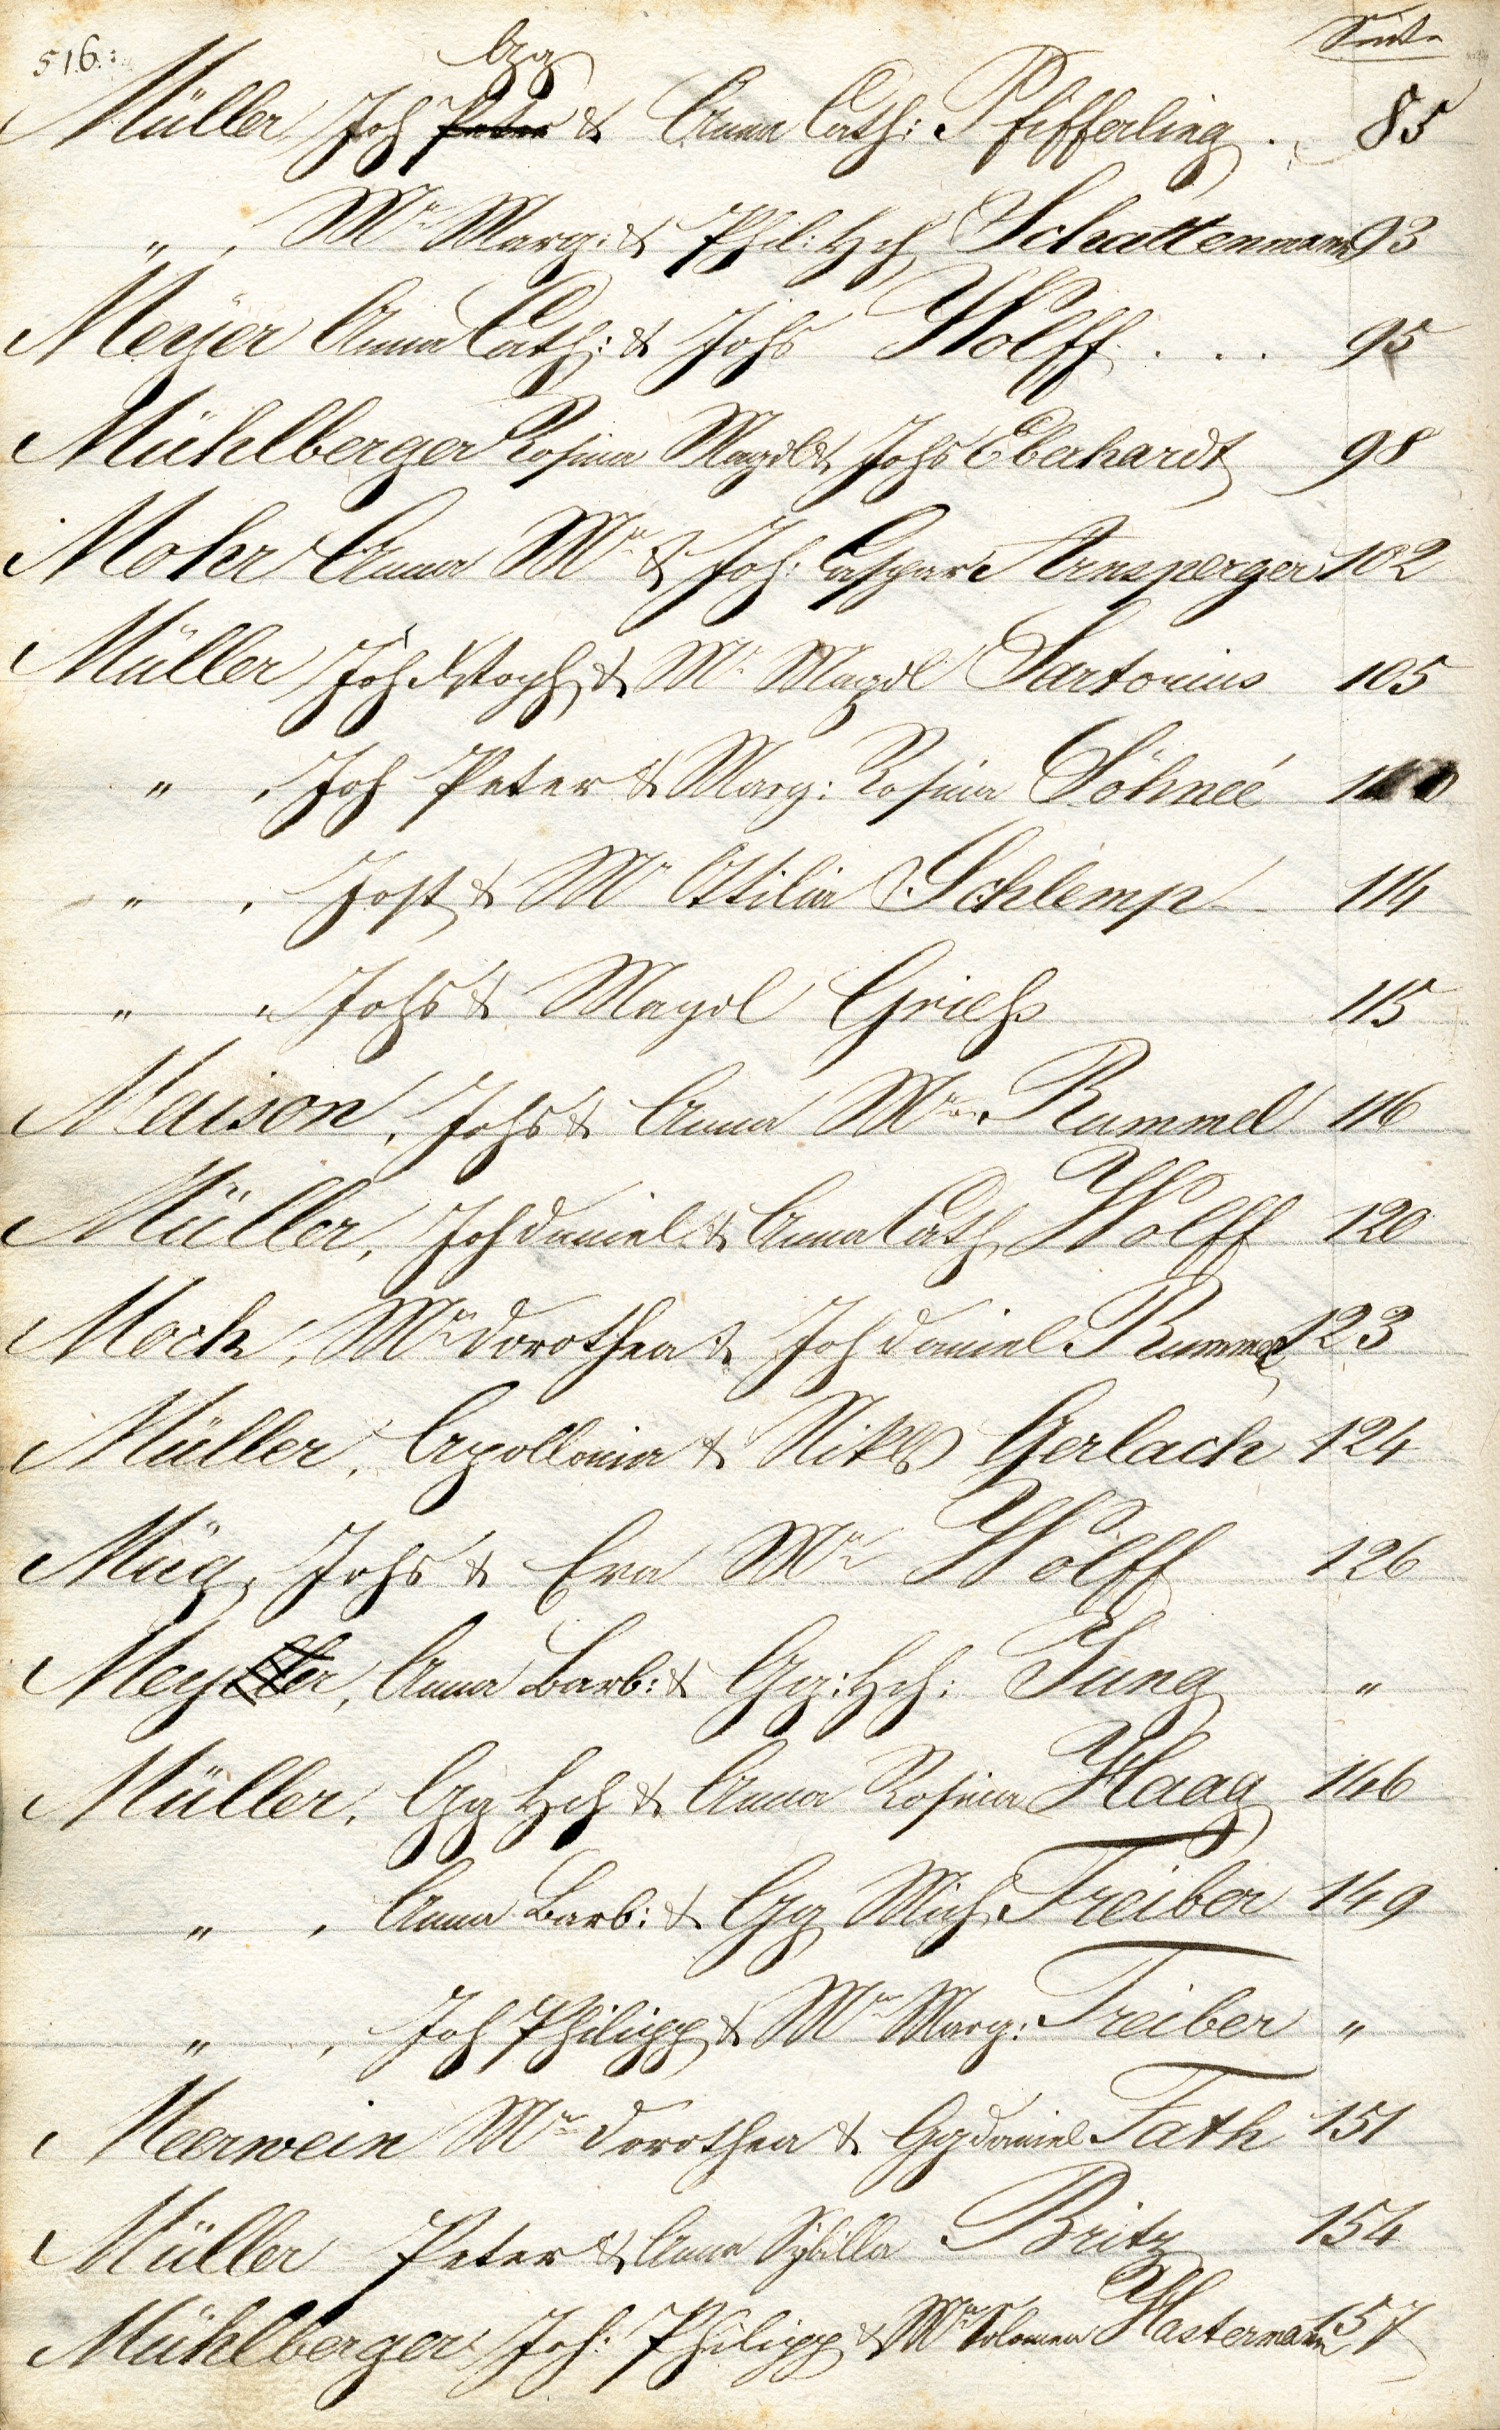 516. Seite
Gg
Müller Joh Peter & Anna Cath: Pfifferling . 85
" , Mr Marg: & Phil: Hch Schattenmann 93
Meyer Anna Cath: & Johs Wolff . . . 95
Mühlberger Rosina Magdl & Johs Eberhardt 98
Mohr Anna Mr & Joh: Caspar Arnsperger 102
Müller Joh Xstoph & Mr Magdl Sartorius 105
" , Joh Peter & Marg: Rosina Söhneé
" , Jost & Mr Ottilia Schlemp 114
" , Johs & Magdl Griehs 115
Maison, Johs & Anna Mr Rummel 116
Müller, Joh Daniel & Anna Cath Wolff 120
Moch, Mr Dorothea & Joh Daniel Rummel 123
Müller, Apollonia & Nikls Gerlach 124
Müg, Johs & Eva Mr Wolff 126
Mey , Anna Barb: & Gg: Hch: Jung "
Müller, Gg Hch & Anna Rosina Haag 146
" , Anna Barb: & Gg Mich Treiber 149
" , Joh Philipp & Mr Marg: Treiber "
Meerwein Mr Dorothea & Gg Daniel Fath 151
Müller Peter & Anna Sybilla Britz 154
Mühlberger Joh: Philipp & Mr Solomea Hastermann 157